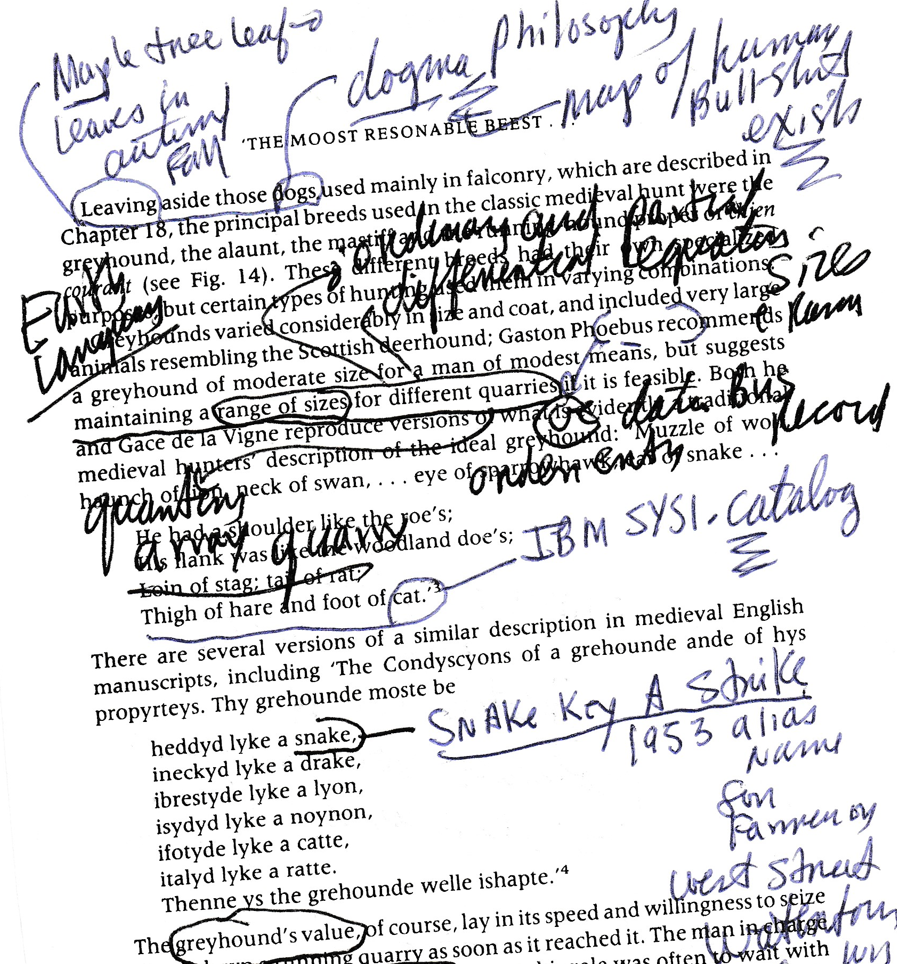 Maple tree leaf
Leaves in
autumn
Fall
dogma Philosophy
map of human
Bull-shit
exists
'THE MOOST RESONABLE BEEST . . .
Leaving aside those dogs used mainly in falconry, which are described in
Chapter 18, the principal breeds used in the classic medieval hunt were the
greyhound, the alaunt, the mastiff
courant (see Fig. 14). These different breeds had their own
purposes, but certain types of hunting used them in varying combinations.
Greyhounds varied considerably in size and coat, and included very large
animals resembling the Scottish deerhound; Gaston Phoebus recommends
a greyhound of moderate size for a man of modest means, but suggests
maintaining a range of sizes for different quarries if it is feasible. Both he
and Gace de la Vigne reproduce versions of what is evidently a traditional
medieval hunters' description of the ideal greyhound: 'Muzzle of wolf,
haunch of lion, neck of swan, . . . eye of sparrowhawk, of snake . . .
ordinary and partial
differential equations
Early
Language
sizes
data bus
record
order entry
quantity
array quarry
He had a shoulder like the roe's;
His flank was like the woodland doe's;
Loin of stag; tail of rat;
Thigh of hare and foot of cat.'³
IBM SYS1. catalog
There are several versions of a similar description in medieval English
manuscripts, including 'The Condyscyons of a grehounde ande of hys
propyrteys. Thy grehounde moste be
heddyd lyke a snake,
ineckyd lyke a drake,
ibrestyde lyke a lyon,
isydyd lyke a noynon,
ifotyde lyke a catte,
italyd lyke a ratte.
Thenne ys the grehounde welle ishapte.'⁴
SNAKE KEY A Strike
1953 alias
Name
for
west street
The greyhound's value, of course, lay in its speed and willingness to seize
running quarry as soon as it reached it. The man in charge
role was often to wait with